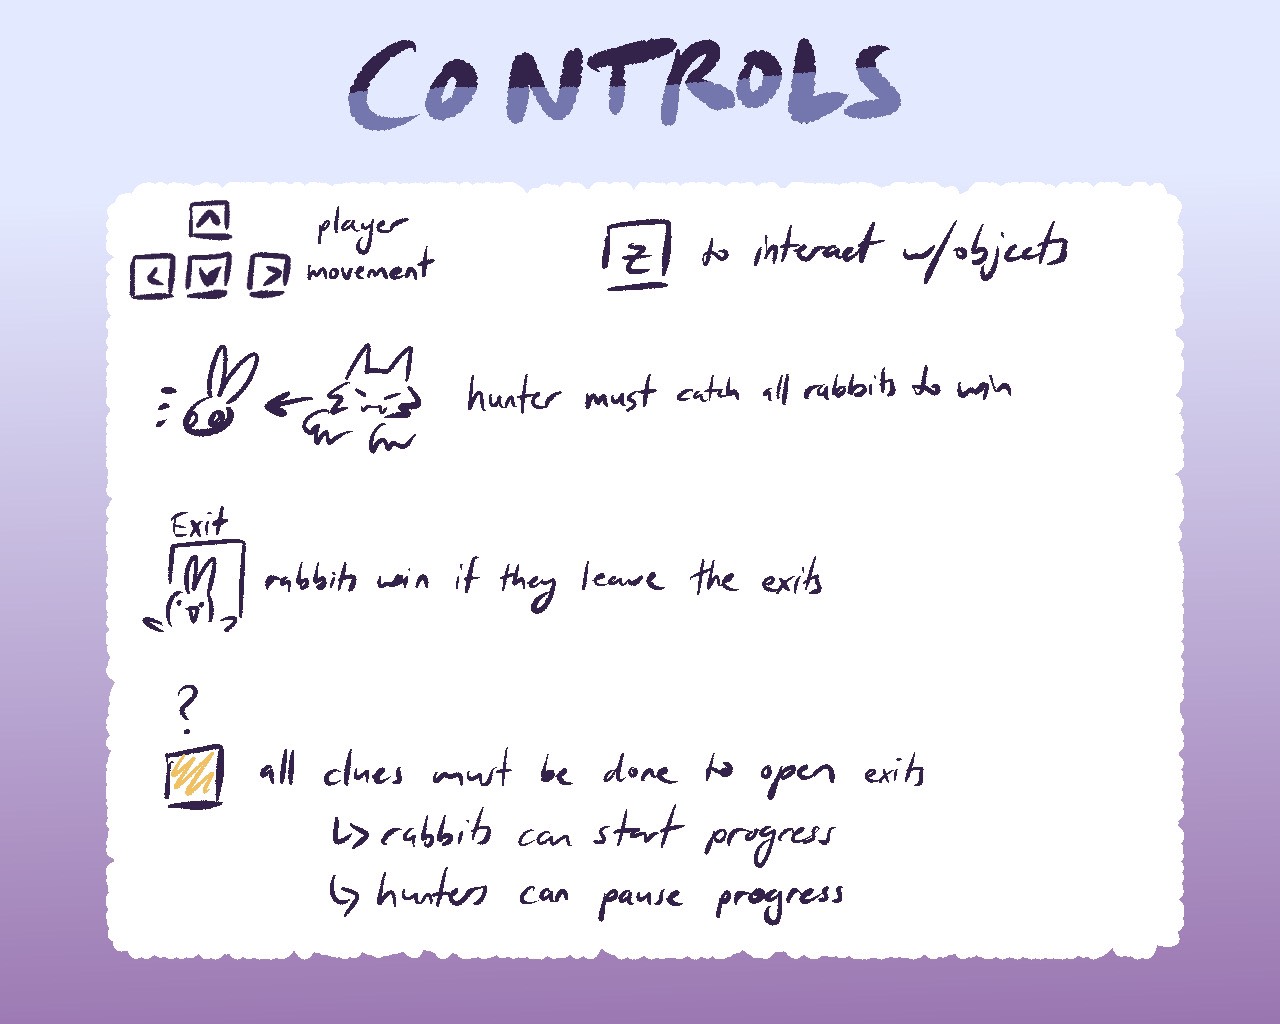 CONTROLS
player
movement
z to interact w/objects
hunter must catch all rabbits to win
Exit
rabbits win if they leave the exits
?
all clues must be done to open exits
↳ rabbits can start progress
↳ hunters can pause progress